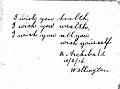 I wish you health,
I wish you wealth,
I wish you all you
wish yourself
A. Archibald
10/2/16
Wellington